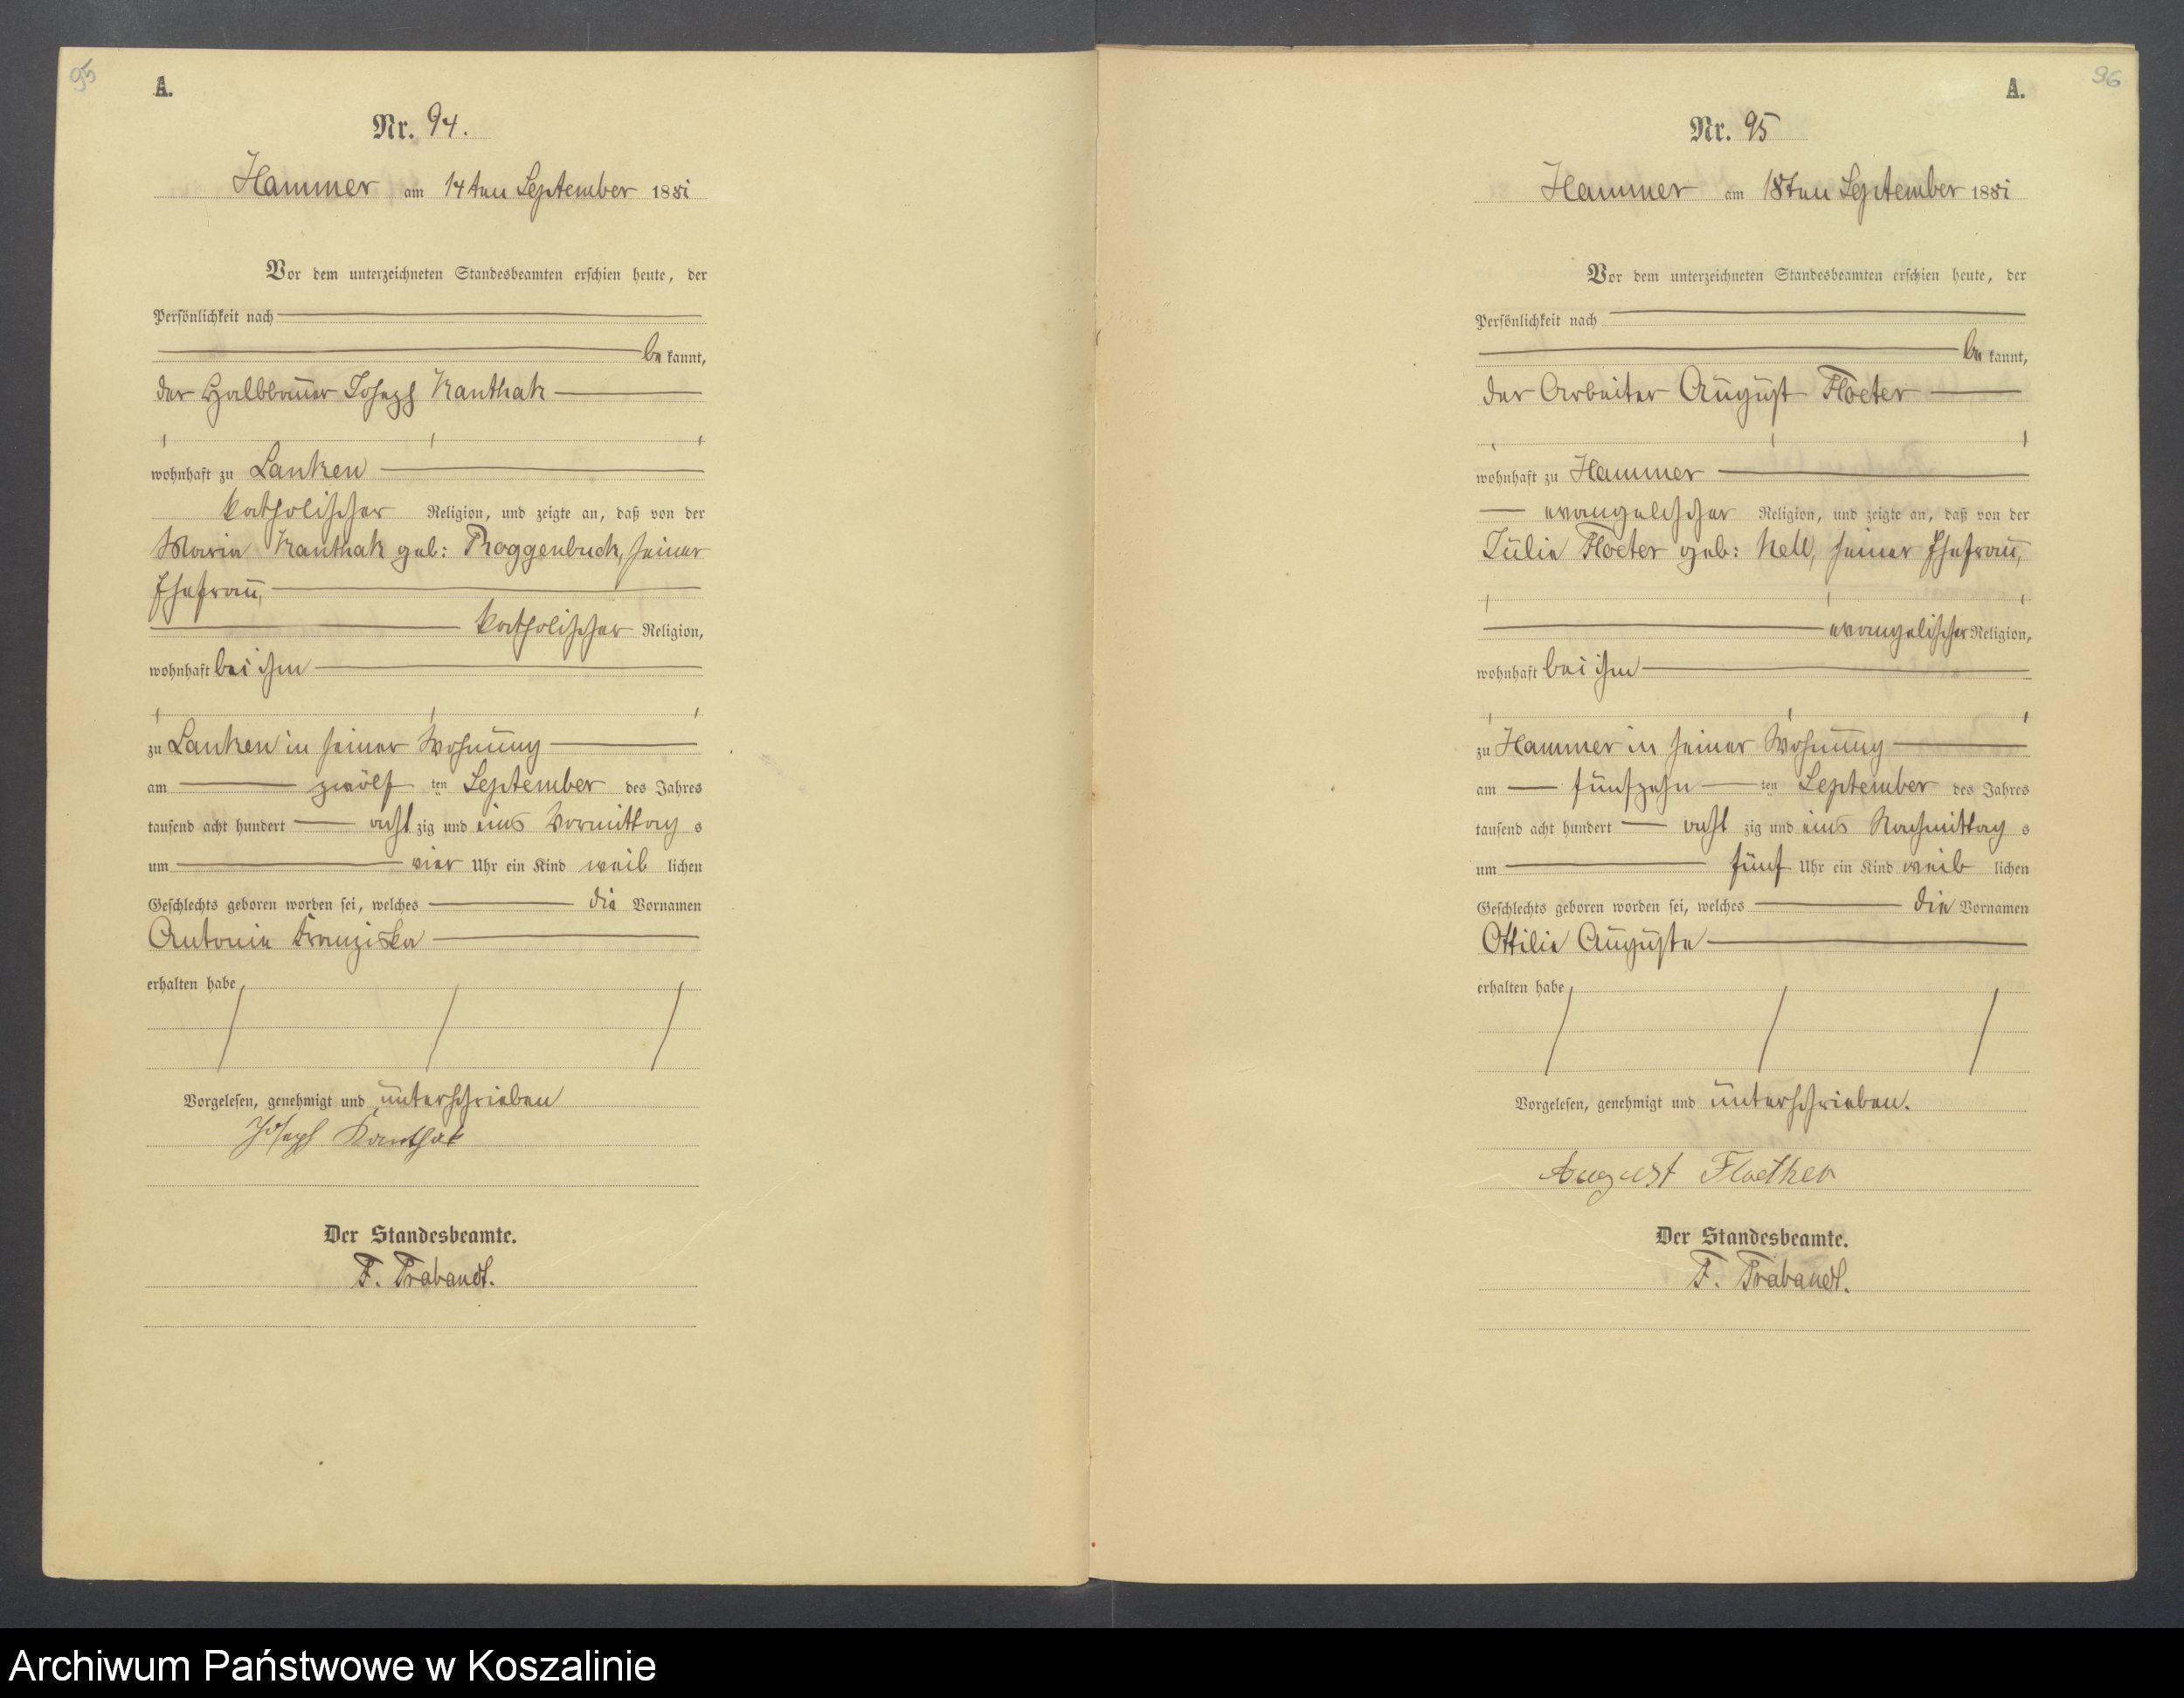 95
A.
Nr. 94.
Hammer am 14ten September 1881
Vor dem unterzeichneten Standesbeamten erschien heute, der
Persönlichkeit nach
be kannt,
der Halbbauer Joseph Kanthak
wohnhaft zu Lanken
katholischer Religion, und zeigte an, daß von der
Maria Kanthak geb: Roggenbuck, seiner
Ehefrau,
katholischer Religion,
wohnhaft bei ihm
zu Lanken in seiner Wohnung
am zwölf ten September des Jahres
tausend acht hundert acht zig und eins Vormittag s
um vier Uhr ein Kind weib lichen
Geschlechts geboren worden sei, welches die Vornamen
Antonie Franziska
erhalten habe
Vorgelesen, genehmigt und unterschrieben
Joseph Kanthak
Der Standesbeamte.
F. Trabandt.
96
A.
Nr. 95
Hammer am 18ten September 1881
Vor dem unterzeichneten Standesbeamten erschien heute, der
Persönlichkeit nach
be kannt,
der Arbeiter August Floeter
wohnhaft zu Hammer
evangelischer Religion, und zeigte an, daß von der
Julie Floeter geb: Nell, seiner Ehefrau,
evangelischer Religion,
wohnhaft bei ihm
zu Hammer in seiner Wohnung
am fünfzehn ten September des Jahres
tausend acht hundert acht zig und eins Nachmittag s
um fünf Uhr ein Kind weib lichen
Geschlechts geboren worden sei, welches die Vornamen
Ottilie Auguste
erhalten habe
Vorgelesen, genehmigt und unterschrieben.
August Floether
Der Standesbeamte.
F. Trabandt.
Archiwum Państwowe w Koszalinie